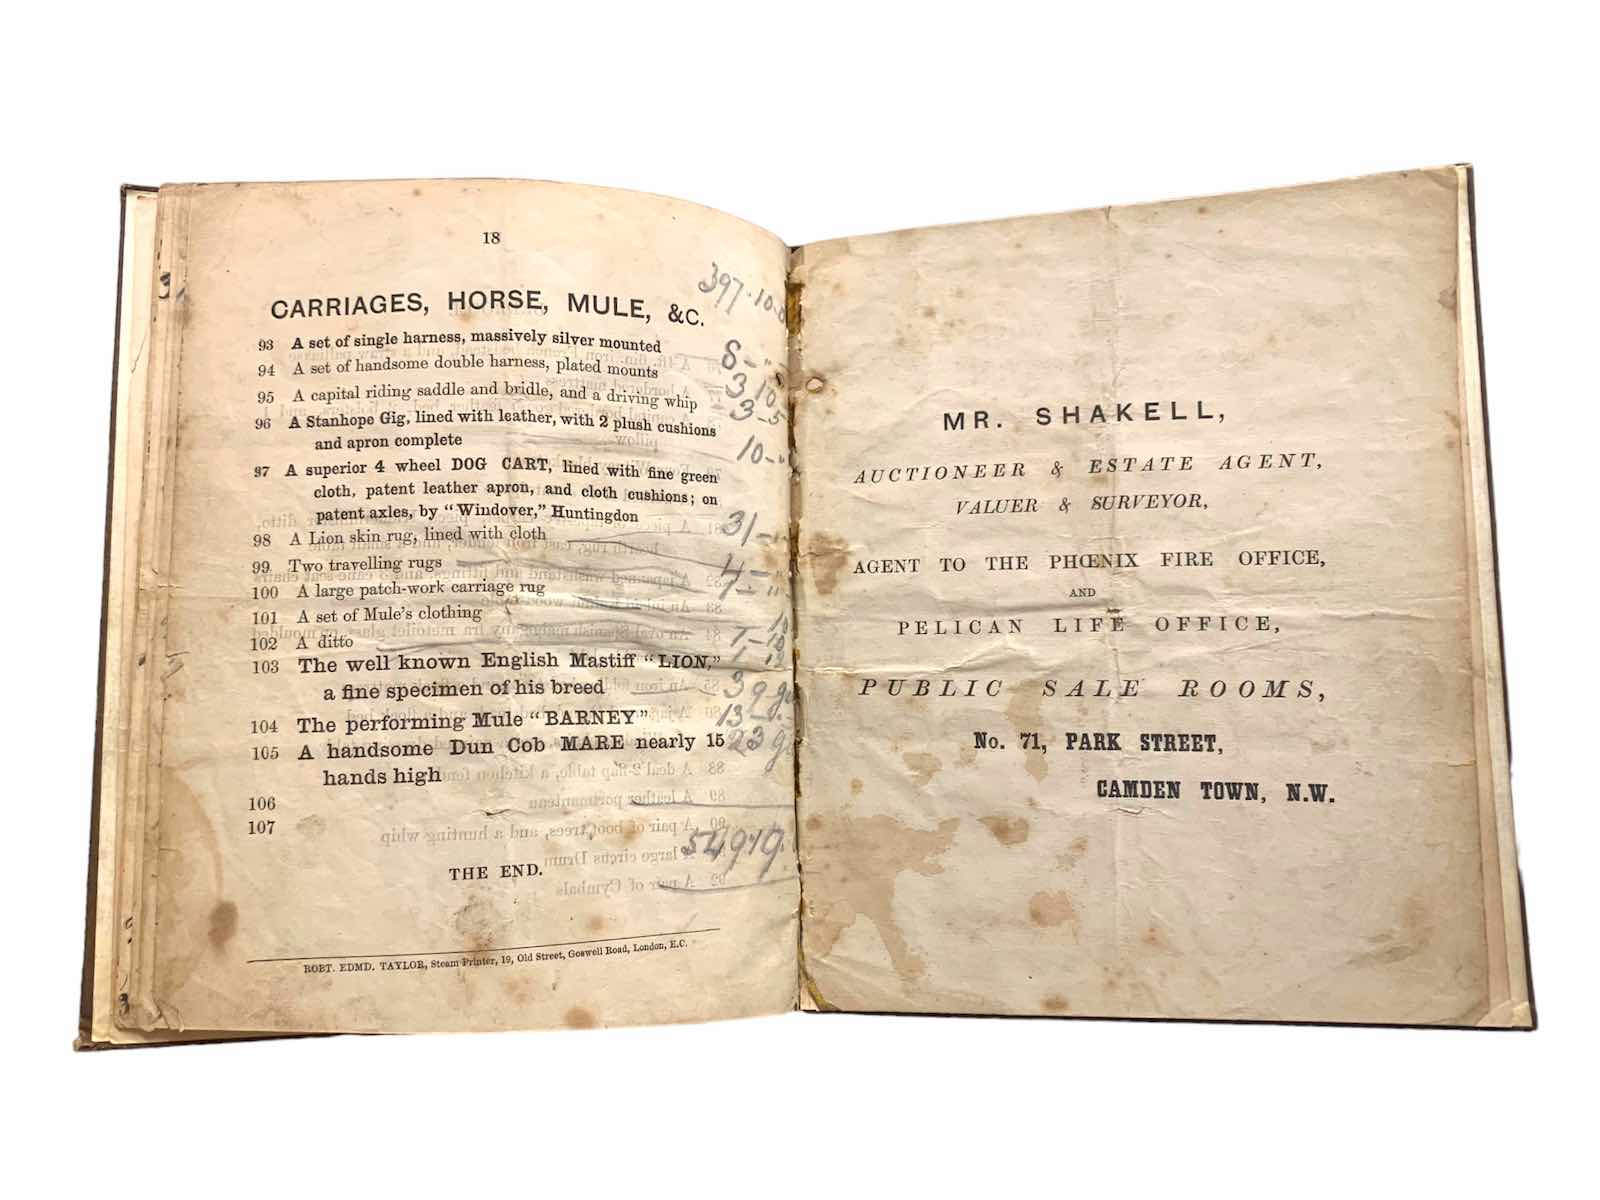 18
CARRIAGES, HORSE, MULE, &C.
397.10
93 A set of single harness, massively silver mounted
94 A set of handsome double harness, plated mounts
95 A capital riding saddle and bridle, and a driving whip
3-5
96 A Stanhope Gig, lined with leather, with 2 plush cushions
and apron complete
10-"
97 A superior 4 wheel DOG CART, lined with fine green
cloth, patent leather apron, and cloth cushions; on
patent axles, by "Windover," Huntingdon
31-
98 A Lion skin rug, lined with cloth
99 Two travelling rugs
4-"
100 A large patch-work carriage rug
101 A set of Mule's clothing
10
102 A ditto
103 The well known English Mastiff "LION,"
a fine specimen of his breed
39 g
104 The performing Mule "BARNEY"
13-
105 A handsome Dun Cob MARE nearly 15
hands high
23 g
106
107
THE END.
ROBT. EDMD. TAYLOR, Steam Printer, 19, Old Street, Goswell Road, London, E.C.
MR. SHAKELL,
AUCTIONEER & ESTATE AGENT,
VALUER & SURVEYOR,
AGENT TO THE PHŒNIX FIRE OFFICE,
AND
PELICAN LIFE OFFICE,
PUBLIC SALE ROOMS,
No. 71, PARK STREET,
CAMDEN TOWN, N.W.